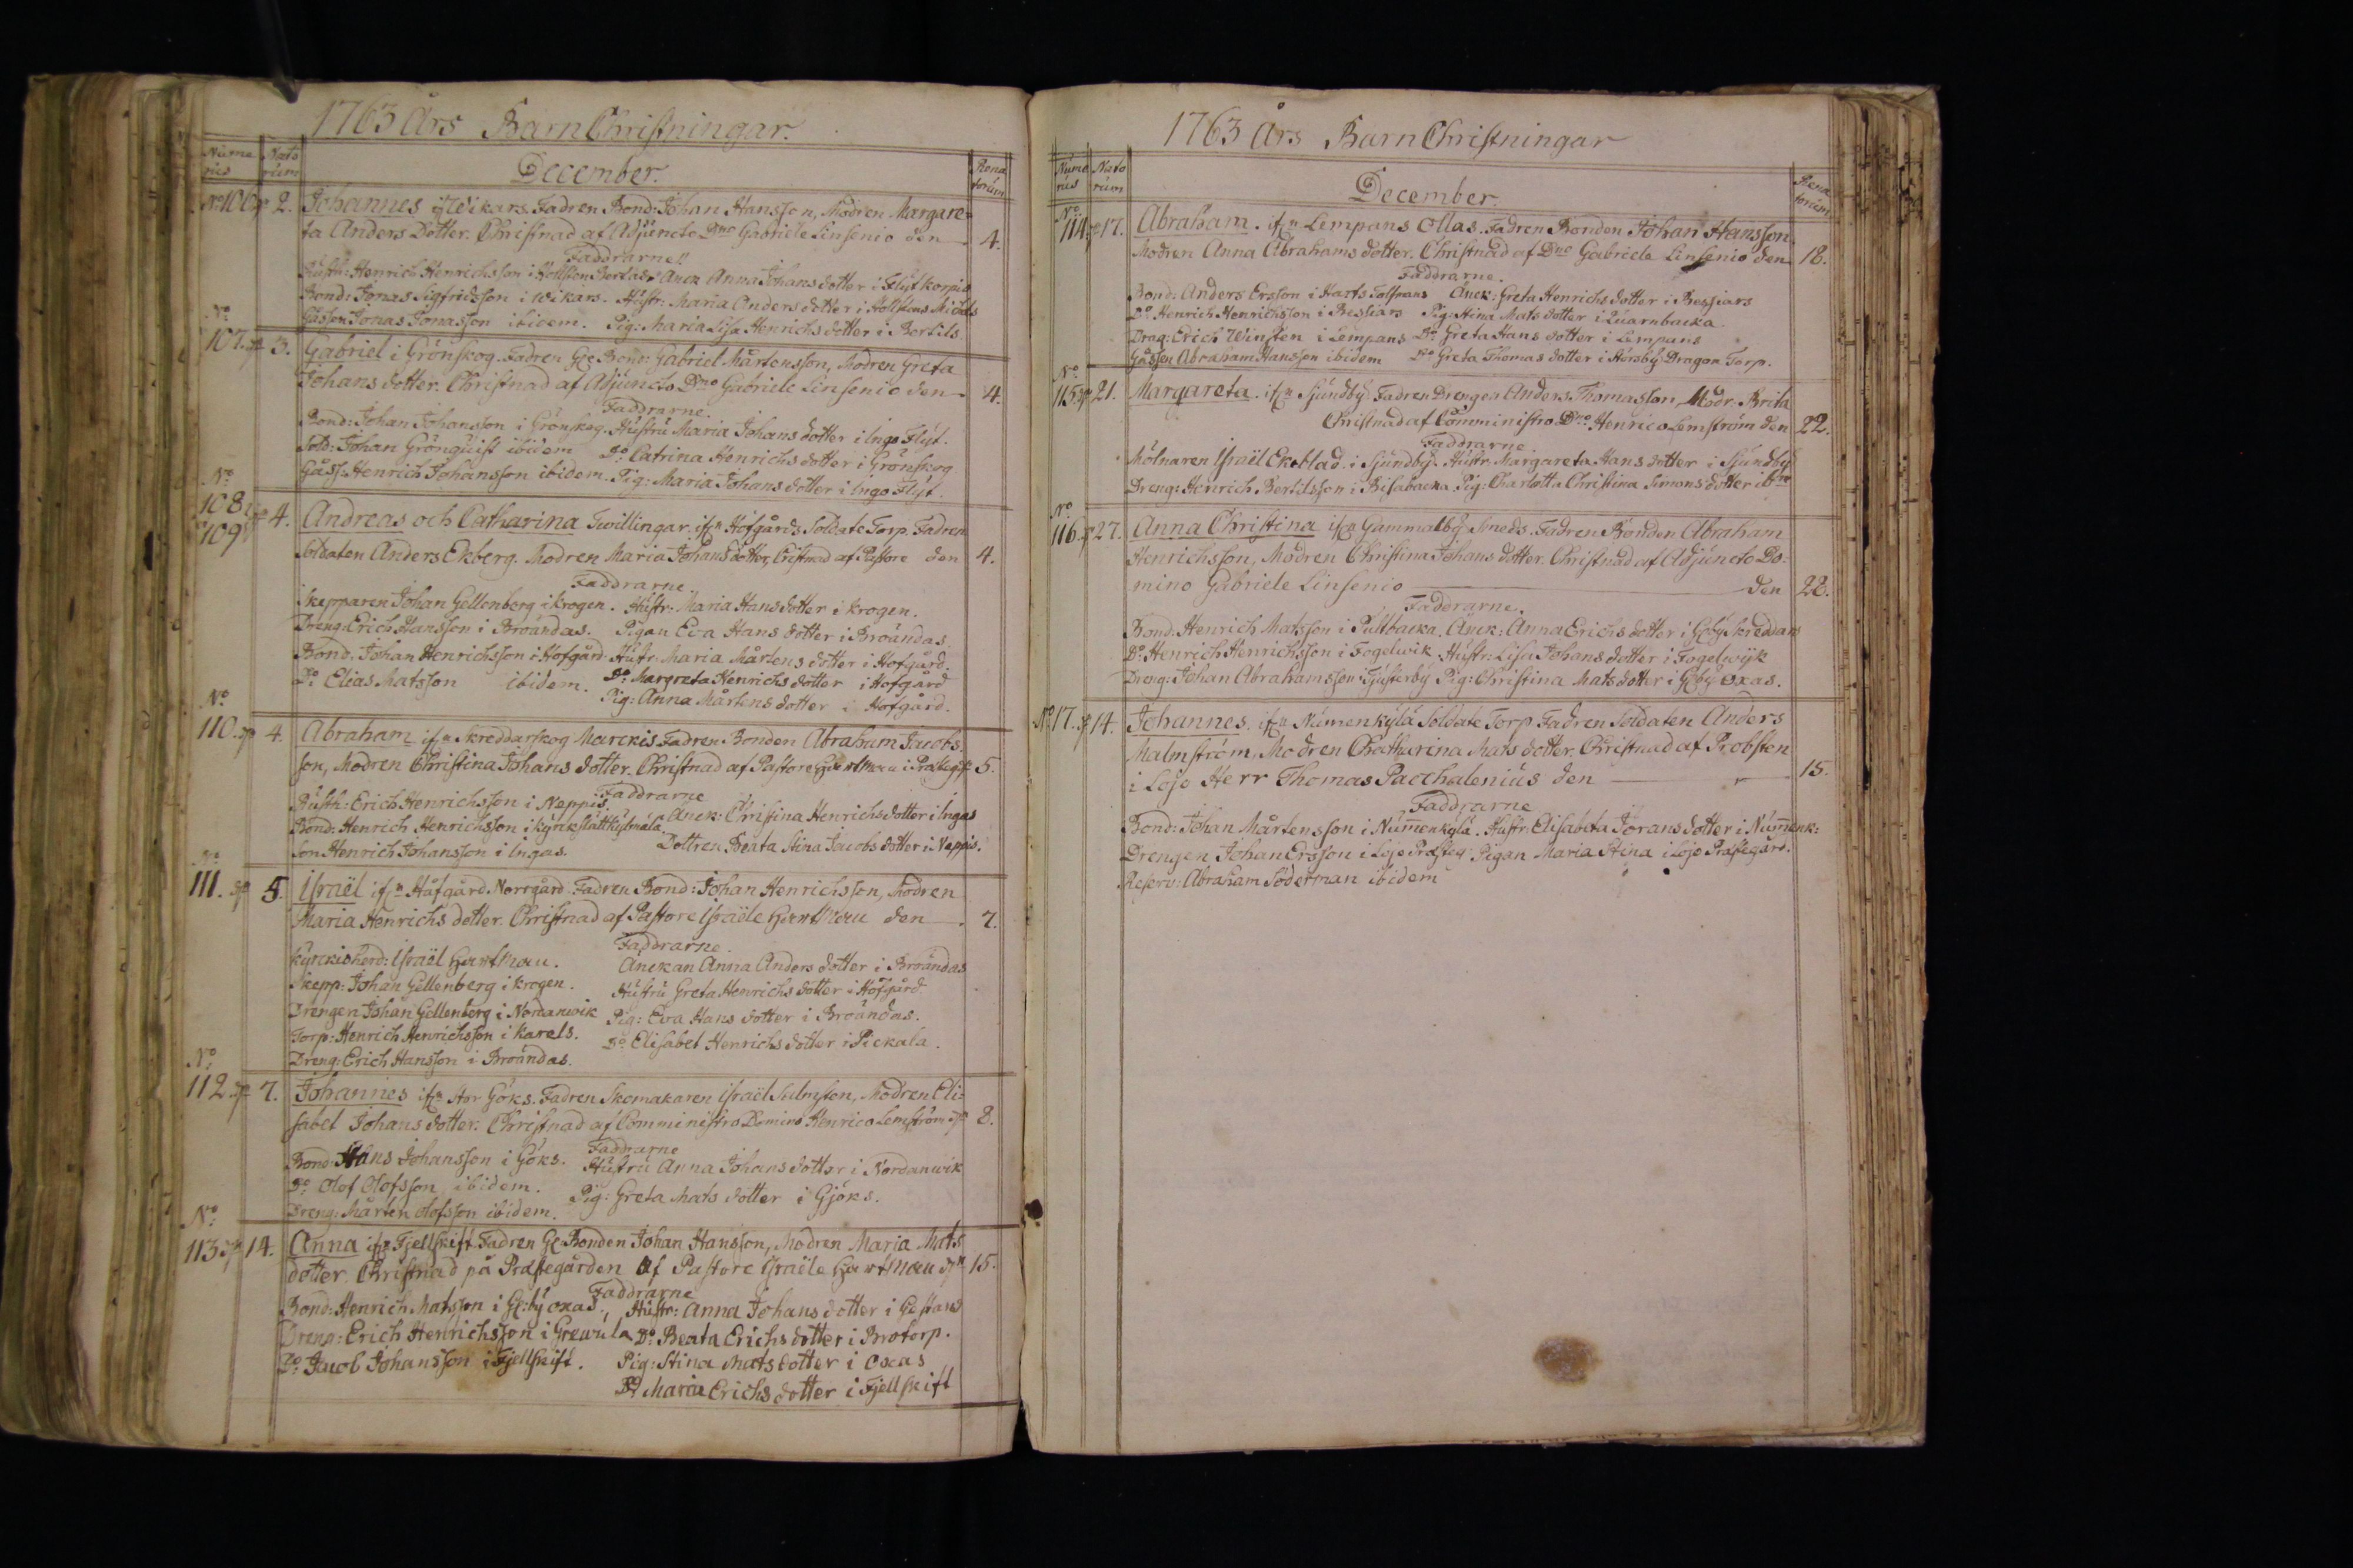 1763 Års BarnChristningar.
Nume
rus
Nato
rum
December.
Rena
torum
No 106. 2. Johannes i Wikars. Fadren Bond: Johan Hansson, Modren Margare=
ta Anders Dotter. Christnad af Adjuncto Dno Gabriele Linsenio den 4.
Faddrarne!
Rusth: Henrich Henrichsson i Båtas Änck Anna Johans dotter i Flyt
Bond: Jonas Sigfridsson i Wikars. Hustr: Maria Anders dotter i Michels
Gåssen Jonas Jonasson ibidem. Pig: Maria Lisa Henrichs dotter i Bertils
No
107. 3. Gabriel i Grönskog. Fadren Bond: Gabriel Mårtensson, Modren Greta
Johans dotter. Christnad af Adjuncto Dno Gabriele Linsenio den 4.
Faddrarne.
Bond: Johan Johansson i Grönskog. Hustru Maria Johans dotter i Inge Flyt.
Sold: Johan Grönquist ibidem Do Catrina Henrichs dotter i Grönskog
Gåss: Henrich Johansson ibidem. Pig: Maria Johans dotter i Inge Flyt.
No
108
109 4. Andreas och Catharina Twillingar ifrn Hofgårds Soldate Torp. Fadren
Soldaten Anders Ekberg. Modren Maria Johans dotter, Cristnad af Pastore den 4.
Faddrarne
Skepparen Johan Gellenberg i Krogen. Hustr: Maria Hans dotter i Krogen.
Dreng: Erich Hansson i Broändas. Pigan Eva Hans dotter i Broändas
Bond: Johan Henrichsson i Hofgård. Hustr: Maria Mårtens dotter i Hofgård.
Do Elias Matsson ibidem. Do Margreta Henrichs dotter i Hofgård
Pig: Anna Mårtens dotter i Hofgård.
No
110. 4. Abraham ifrn Skreddarskog Marckis. Fadren Bonden Abraham Jacobs
son, Modren Christina Johans dotter. Christnad af Pastore Hartman i Prästeg: 5.
Faddrarne
Rusth: Erich Henrichsson i Neppis. Änck: Christina Henrichs dotter i Ingas
Bond: Henrich Henrichsson i Kyrckslätt
son Henrich Johansson i Ingas. Dottren Beata Stina Jacobs dotter i Neppis.
No
111. 5. Israël ifrn Håfgård Norrgård. Fadren Bond: Johan Henrichsson, Modren
Maria Henrichs dotter. Christnad af Pastore Israële Hartman den 7.
Faddrarne.
Kyrckioherd: Israël Hartman. Änckan Anna Anders dotter i Broändas
Skepp: Johan Gellenberg i Krogen. Hustru Greta Henrichs dotter i Hofgård
Drengen Johan Gellenberg i Nordanwik Pig: Eva Hans dotter i Broändas.
Torp: Henrich Henrichsson i Karels. Do Elisabet Henrichs dotter i Pickala.
Dreng: Erich Hansson i Broändas.
No
112. 7. Johannes ifrn Stor Göks. Fadren Skomakaren Israël Sulmsten, Modren Eli=
sabet Johans dotter. Christnad af Comministro Domino Henrico Lemström 8.
Faddrarne
Bond: Hans Johansson i Göks. Hustru Anna Johans dotter i Nordanwik
Do Olof Olofsson ibidem. Pig: Greta Mats dotter i Gjöks.
Dreng: Mårten Olofsson ibidem.
No:
113 14. Anna ifrn Fjellskift. Fadren Bonden Johan Hansson, Modren Maria Mats
dotter. Christnad på Prästegården af Pastore Israële Hartman 15.
Faddrarne
Bond: Henrich Matsson i by oxas. Hustr: Anna Johans dotter i Gestans
Dreng: Erich Henrichsson i Grewula Do Beata Erichs dotter i Brotorp.
Do Jacob Johansson i Fjellskift. Pig: Stina Mats dotter i Oxas
Do Maria Erichs dotter i Fjellskift
1763 Års BarnChristningar
Nume
rus
Nato
rum
December.
Rena
torum
No
114. 17. Abraham. ifrn Lempans Ollas. Fadren Bonden Johan Hansson
Modren Anna Abrahams dotter. Christnad af Dno Gabriele Linsenio den 18.
Faddrarne.
Bond: Anders Ersson i Harfs Änck: Greta Henrichs dotter i Bessiars
Do Henrich Henrichsson i Bessiars Pig: Stina Mats dotter i Quarnbacka.
Drag: Erich Winsten i Lempans Do Greta Hans dotter i Lempans
Gåssen Abraham Hansson ibidem Do Greta Thomas dotter i Störsby Dragon Torp.
No
115 21. Margareta. ifrn Sjundby. Fadren Drengen Anders Thomasson, Modr. Brita
Christnad af Comministro Dno Henrico Lemström den 22.
Faddrarne
Mölnaren Israël Ekeblad i Sjundby. Hustr. Margareta Hans dotter i Sjundby
Dreng: Henrich Bertilsson i Bisabacka. Pig: Charlotta Christina Simons dotter
No
116. 27. Anna Christina ifrn Gammalby Smeds. Fadren Bonden Abraham
Henrichsson, Modren Christina Johans dotter. Christnad af Adjuncto Do=
mino Gabriele Linsenio den 28.
Faddrarne.
Bond: Henrich Matsson i Pultbacka. Änck: Anna Erichs dotter i Gby Skreddars
Do: Henrich Henrichsson i Fogelwik Hustr: Lisa Johans dotter i Fogelwijk
Dreng: Johan Abrahamsson i Tjusterby Pig: Christina Mats dotter i Gby Oxas.
No 17. 14. Johannes. ifrn Numenkylä Soldate Torp. Fadren Soldaten Anders
Malmström, Modren Chatharina Mats dotter. Christnad af Probsten
i Lojo Herr Thomas Pacchalenius den 15.
Faddrarne
Bond: Johan Mårtensson i Numenkylä. Hustr: Elisabeta Jörans dotter i Numenk:
Drengen Johan Ersson i Lojo Prästeg: Pigan Maria Stina i Lojo Prästegård.
Reserv: Abraham Söderman ibidem